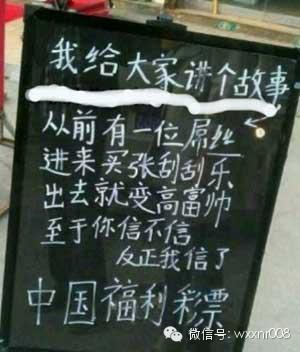 我给大家讲个故事
从前有一位屌丝
进来买张刮刮乐
出去就变高富帅
至于你信不信
反正我信了
中国福利彩票
微信号: wxxnr008